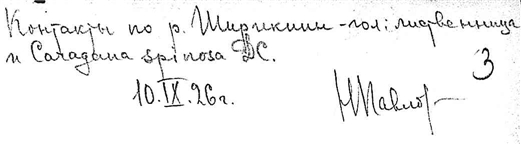 Контакты по р. Ширикшин-гол: лиственница
и Caragana spinosa DC.
3
10.IX.26г.
НПавлов